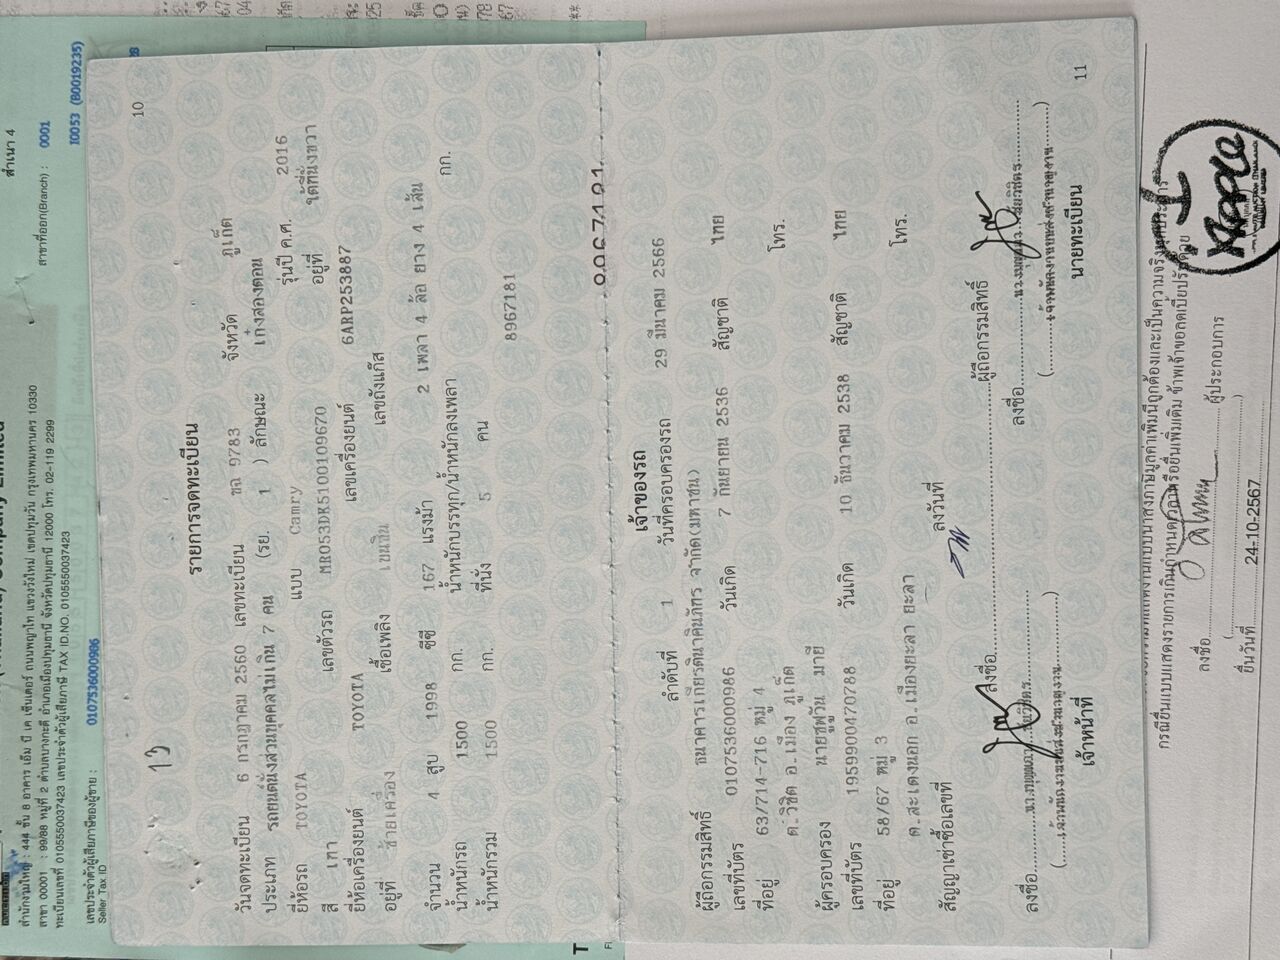 10
13
รายการจดทะเบียน
วันจดทะเบียน 6 กรกฎาคม 2560 เลขทะเบียน ขฉ 9783 จังหวัด ภูเก็ต
ประเภท รถยนต์นั่งส่วนบุคคลไม่เกิน 7 คน (รย. 1 ) ลักษณะ เก๋งสองตอน
ยี่ห้อรถ TOYOTA แบบ Camry รุ่นปี ค.ศ. 2016
สี เทา เลขตัวรถ MR053DK5100109670 อยู่ที่ ใต้ที่นั่งขวา
ยี่ห้อเครื่องยนต์ TOYOTA เลขเครื่องยนต์ 6ARP253887
อยู่ที่ ซ้ายเครื่อง เชื้อเพลิง เบนซิน เลขถังแก๊ส
จำนวน 4 สูบ 1998 ซีซี 167 แรงม้า 2 เพลา 4 ล้อ ยาง 4 เส้น
น้ำหนักรถ 1500 กก. น้ำหนักบรรทุก/น้ำหนักลงเพลา กก.
น้ำหนักรวม 1500 กก. ที่นั่ง 5 คน
8967181
เจ้าของรถ
ลำดับที่ 1 วันที่ครอบครองรถ 29 มีนาคม 2566
ผู้ถือกรรมสิทธิ์ ธนาคารเกียรตินาคินภัทร จำกัด(มหาชน)
เลขที่บัตร 0107536000986 วันเกิด 7 กันยายน 2536 สัญชาติ ไทย
ที่อยู่ 63/714-716 หมู่ 4 โทร.
ต.วิชิต อ.เมือง ภูเก็ต
ผู้ครอบครอง นายซูฟวัน มายี
เลขที่บัตร 1959900470788 วันเกิด 10 ธันวาคม 2538 สัญชาติ ไทย
ที่อยู่ 58/67 หมู่ 3 โทร.
ต.สะเตงนอก อ.เมืองยะลา ยะลา
สัญญาเช่าซื้อเลขที่ ลงวันที่
ลงชื่อ ผู้ถือกรรมสิทธิ์
ลงชื่อ ลงชื่อ
เจ้าหน้าที่ นายทะเบียน
11
สำเนา 4
สาขาที่ออก(Branch) : 0001
I0053 (B0019235)
สำนักงานใหญ่ : 444 ชั้น 8 อาคาร เอ็ม บี เค เซ็นเตอร์ ถนนพญาไท แขวงวังใหม่ เขตปทุมวัน กรุงเทพมหานคร 10330
สาขา 00001 : 99/88 หมู่ที่ 2 ตำบลบางกะดี อำเภอเมืองปทุมธานี จังหวัดปทุมธานี 12000 โทร. 02-119 2299
ทะเบียนเลขที่ 0105550037423 เลขประจำตัวผู้เสียภาษี TAX ID.NO. 0105550037423
เลขประจำตัวผู้เสียภาษีของผู้ขาย : 0107536000986
Seller Tax ID
ลงชื่อ ผู้ประกอบการ
ยื่นวันที่ 24-10-2567